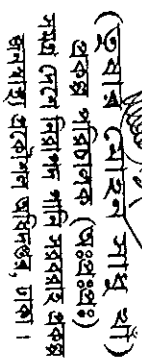 (তুষার মোহন সাধু খাঁ)
প্রকল্প পরিচালক (অঃদাঃ)
সমগ্র দেশে নিরাপদ পানি সরবরাহ প্রকল্প
জনস্বাস্থ্য প্রকৌশল অধিদপ্তর, ঢাকা।